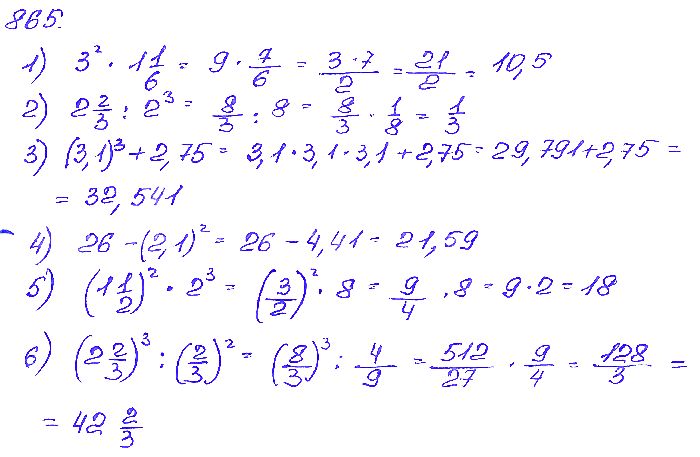 865.
1) 3² · 1 1/6 = 9 · 7/6 = 3·7/2 = 21/2 = 10,5
2) 2 2/3 : 2³ = 8/3 : 8 = 8/3 · 1/8 = 1/3
3) (3,1)³ + 2,75 = 3,1 · 3,1 · 3,1 + 2,75 = 29,791 + 2,75 =
= 32,541
4) 26 - (2,1)² = 26 - 4,41 = 21,59
5) (1 1/2)² · 2³ = (3/2)² · 8 = 9/4 · 8 = 9 · 2 = 18
6) (2 2/3)³ : (2/3)² = (8/3)³ : 4/9 = 512/27 · 9/4 = 128/3 =
= 42 2/3